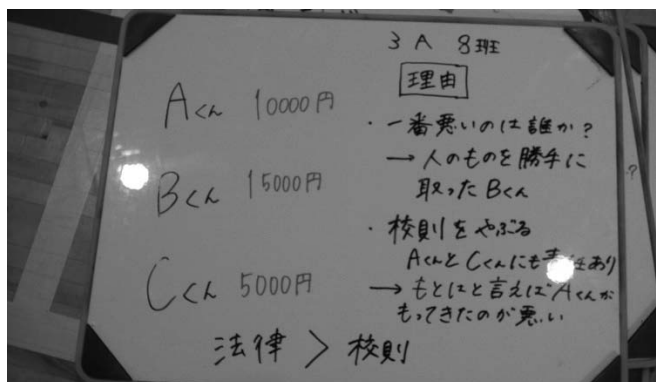 3A 8班
理由
Aくん 10000円
Bくん 15000円
Cくん 5000円
・一番悪いのは誰か?
→ 人のものを勝手に
取ったBくん
・校則をやぶる
AくんとCくんにも責任あり
→ もとはと言えばAくんが
もってきたのが悪い
法律 > 校則
?